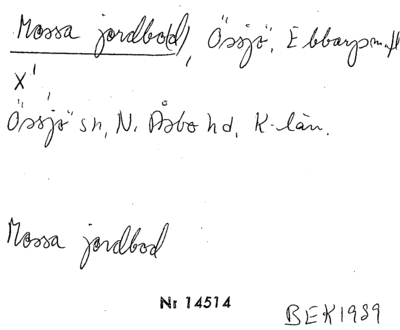 Mossa jordbo(d), Össjö, Ebbarps m fl
x',
Össjö sn, N. Åsbo hd, K-län.
Mossa jordbod
Nr 14514
BEK1989